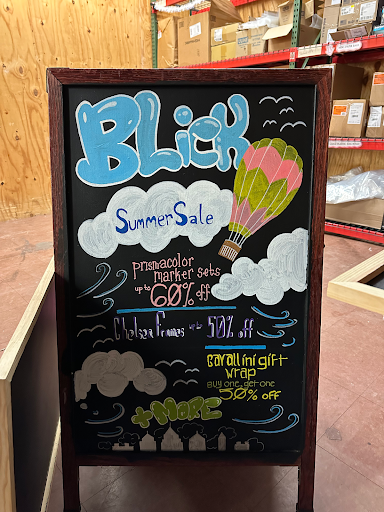 BLiCK
Summer Sale
prismacolor
marker sets
up to 60% off
Chelsea Frames up to 50% off
Cavallini gift
wrap
BUY ONE, get one
50% OFF
+MORE